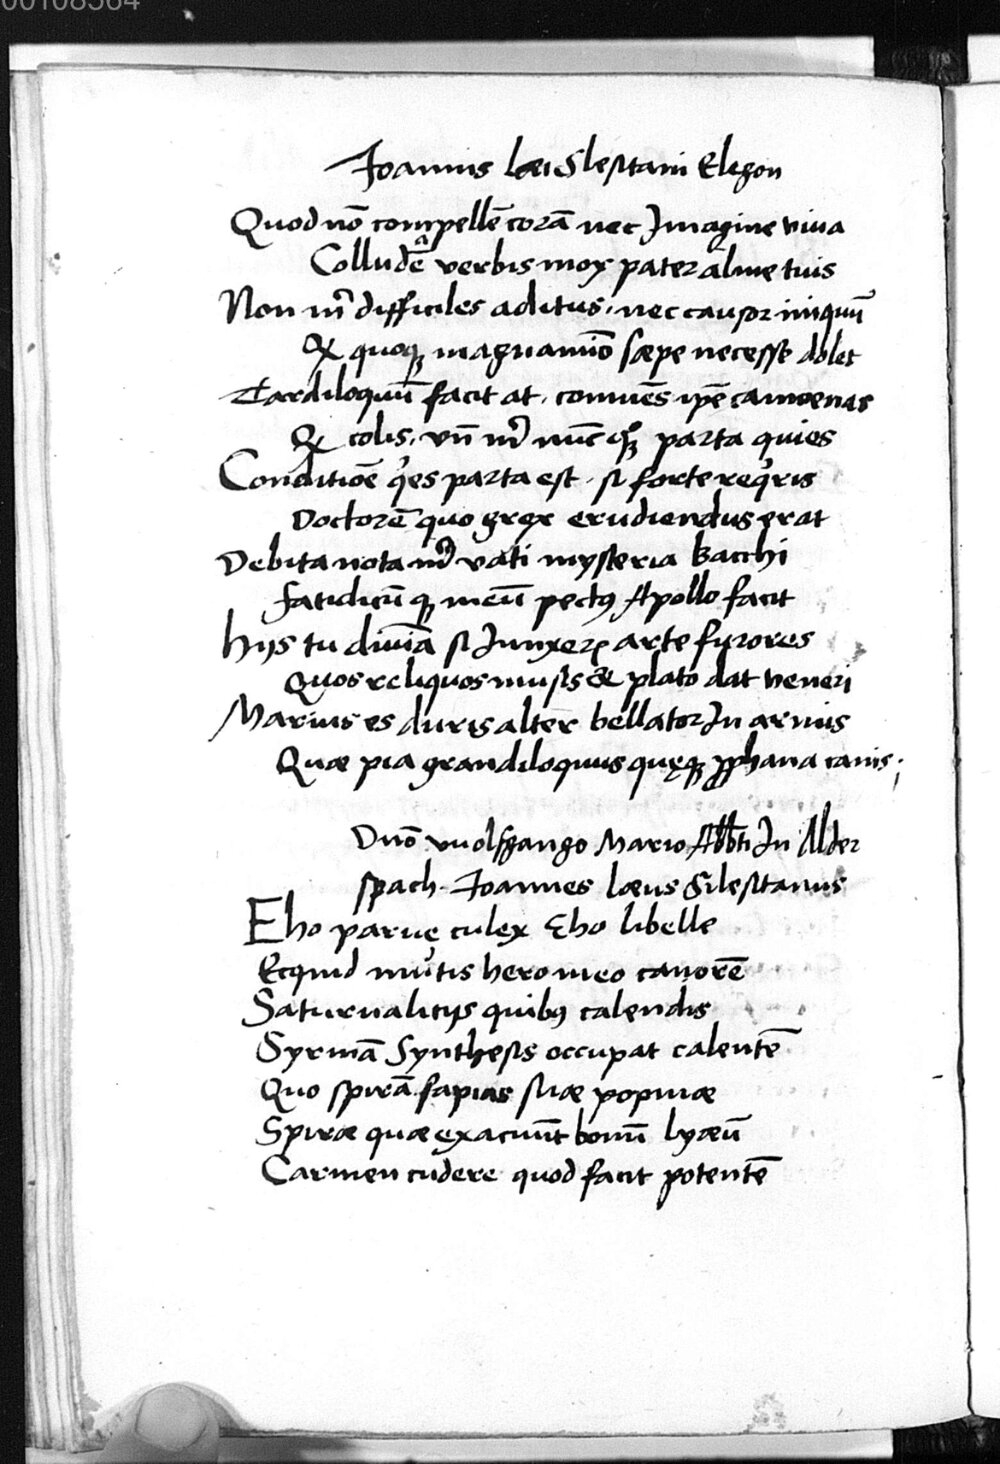 00108564
Joannis Læi Slesitani Elegon
Quod nō compellē corā nec Imagine viva
Colludē verbis mox pater alme tuis
Non m̄ difficiles aditus, nec causor iniquū
Qꝫ quoqꝫ magnanimo sæpe necesse dolet
Tardiloquū facit at, conniuēs ipē camoenas
Qꝫ colis, vn̄ m̄ nūc parta quies
Conditiōe q̄es parta est, si forte req̄ris
Doctorē quo grex erudiendus erat
Debita nota m̄ vati mysteria Bacchi
fatidicū qꝫ meū pectꝰ Apollo facit
hijs tu diuīa si Junxerꝭ arte furores
Quos reliquos musis & plato dat veneri
Marius es duris alter bellator In armis
Quæ pia grandiloquus quęqꝫ ꝓphana canis.
Dnō vuolfgango Mario Abbti In Alder
spach. Joannes Læus Silesitanus
Eho parue culex Eho libelle
Ecquid mutis hero meo canorē
Saturnalitijs quibꝰ calendis
Syrmā Synthesis occupat calentē
Quo spirā sapias suæ popinæ
Spiræ quæ exacuūt bonū lyæū
Carmen cudere quod facit potentē